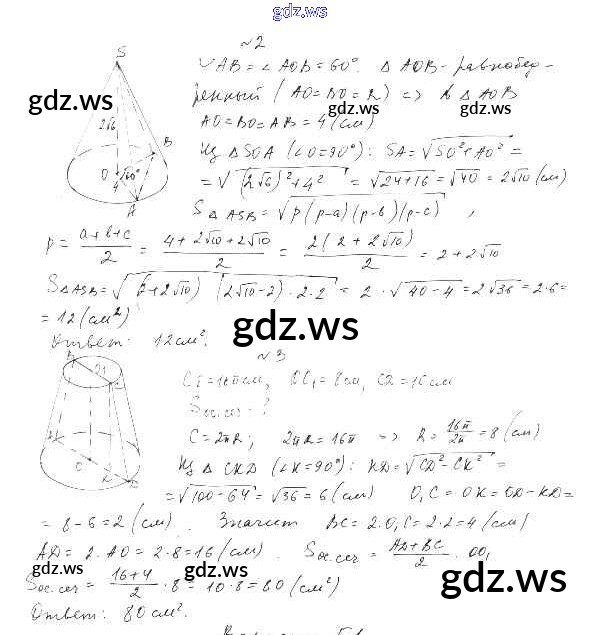 gdz.ws
№2
∪AB = ∠AOB = 60°. △AOB - равнобед-
ренный (AO = BO = R) => в △AOB
AO = BO = AB = 4 (см)
Из △SOA (∠O = 90°): SA = √(SO² + AO²) =
= √((2√6)² + 4²) = √(24+16) = √40 = 2√10 (см)
S△ASB = √(p(p-a)(p-b)(p-c)),
p = (a+b+c)/2 = (4+2√10+2√10)/2 = (2(2+2√10))/2 = 2+2√10
S△ASB = √((2+2√10)(2√10-2)·2·2) = 2·√(40-4) = 2√36 = 2·6 =
= 12 (см²)
Ответ: 12 см².
№3
C1 = 16π см, OO₁ = 8 см, CD = 10 см
Sос.сеч = ?
C = 2πR; 2πR = 16π => R = 16π/2π = 8 (см)
Из △CKD (∠K = 90°): KD = √(CD² - CK²) =
= √(100-64) = √36 = 6 (см) O₁C = OK = OD - KD =
= 8-6 = 2 (см). Значит BC = 2·O₁C = 2·2 = 4 (см)
AD = 2·AO = 2·8 = 16 (см). Sос.сеч = (AD+BC)/2 · OO₁
Sос.сеч = (16+4)/2 · 8 = 10·8 = 80 (см²)
Ответ: 80 см².
S
2√6
B
O
60°
4
A
B
O₁
C
A
O
K
D
gdz.ws
gdz.ws
gdz.ws
gdz.ws
gdz.ws
gdz.ws
gdz.ws
gdz.ws